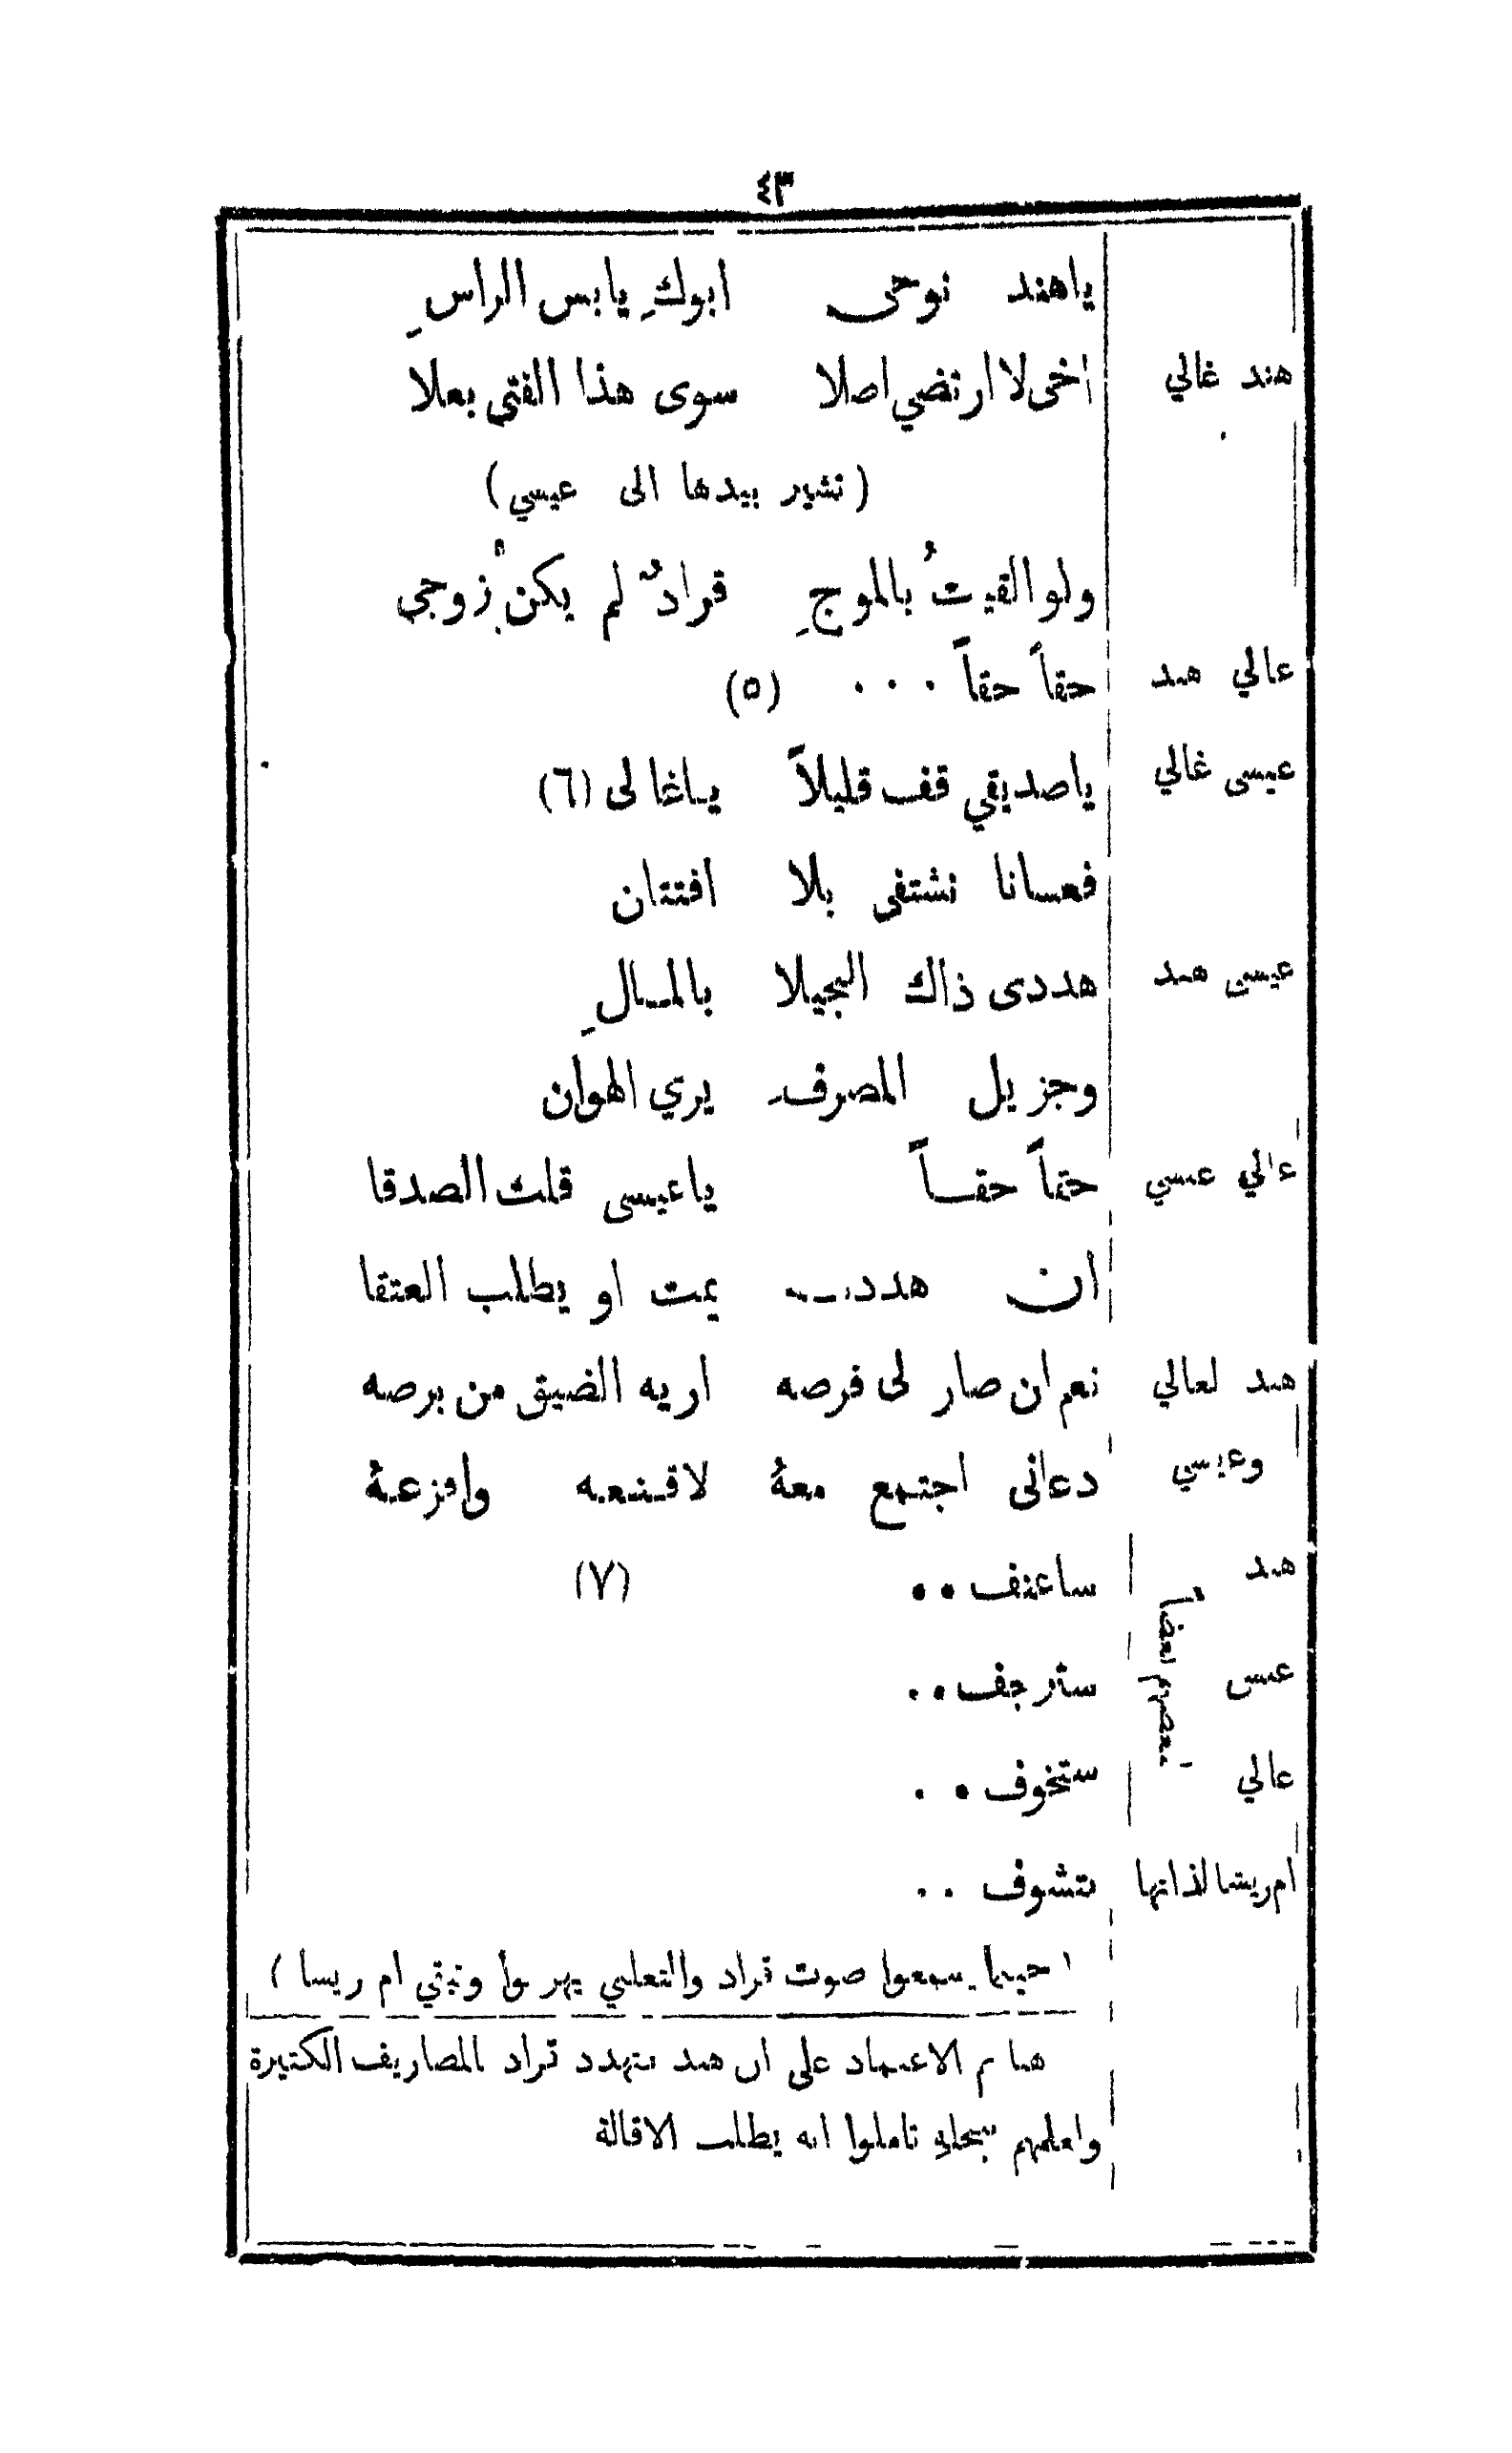 ٤٣
ياهند نوحى ابوكِ يابس الراسِ
هند غالي اخى لا ارتضي اصلا سوى هذا الفتى بعلا
(تشير بيدها الى عيسي)
ولو القيتُ بالموجِ قرادٌ لم يكنْ زوجى
غالي هند حقاً حقاً ٠٠٠ (٥)
عيسى غالي ياصديقي قف قليلاً ياغالى (٦)
فعسانا نشتفى بلا افتتان
عيسى هند هددى ذاك البجيلا بالمالِ
وجزيل المصرف يري الهوان
غالي عيسي حقاً حقاً ياعيسى قلت الصدقا
ان هددت يمت او يطلب العتقا
هند لغالي نعم ان صار لى فرصه اريه الضيق من برصه
وعيسي دعانى اجتمع معهُ لاقنعه وافزعهُ
هند ساعنف ٠٠ (٧)
بعضهم بعضاً
عيسى سترجف ٠٠
غالي ستخوف ٠٠
ام ريشا لذاتها نتشوف ٠٠
(حينما يسمعوا صوت قراد والثعلبي يهربوا وتبقي ام ريسا)
هنا تم الاعتماد على ان هند تتهدد قراد بالمصاريف الكثيرة
واعلمهم ببخله تاملوا انه يطلب الاقالة